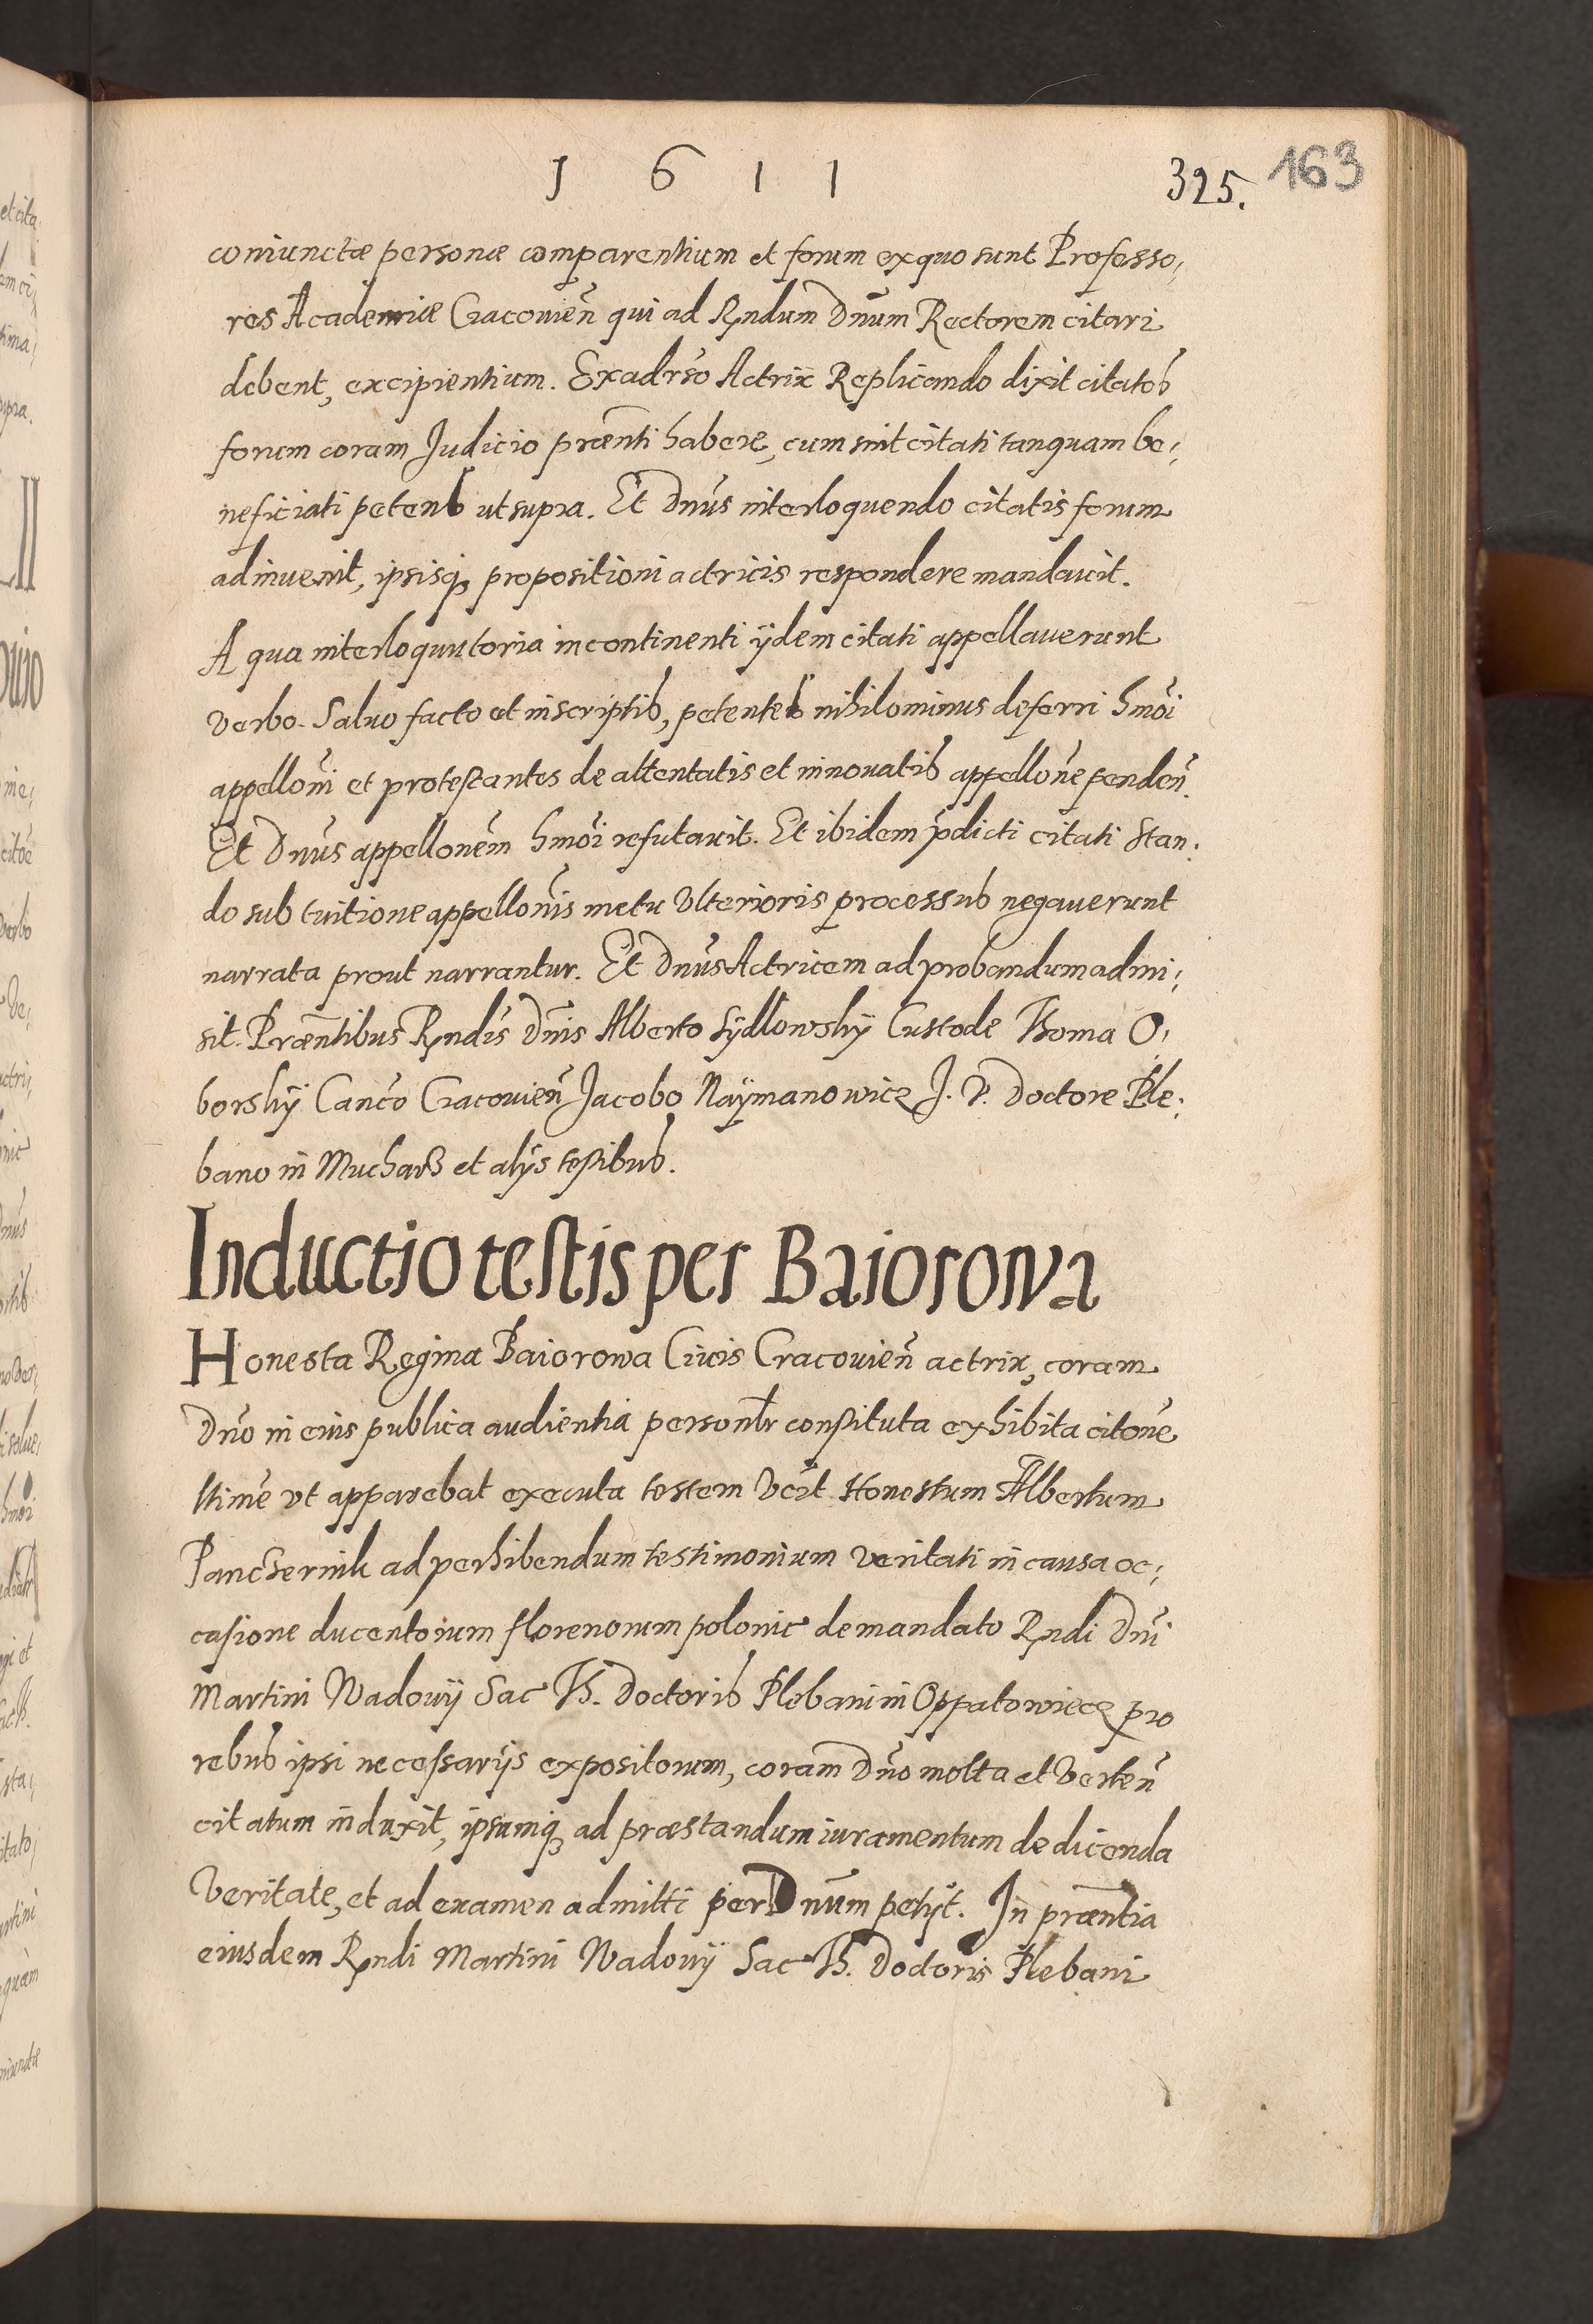 1 6 1 1
325. 163
coniunctæ personæ comparentium et forum exquo sunt Professo,
res Academiæ Cracouien̄ qui ad Rndum Dnum Rectorem citari
debent, excipientium. Exadrso Actrix Replicando dixit citatos
forum coram Judicio præn̄ti habere, cum sint citati tanquam be,
neficiati petens ut supra. Et Dnus interloquendo citatis forum
adinuenit, ipsisq; propositioni actricis respondere mandauit.
A qua interloquutoria incontinenti ijdem citati appellauerunt
verbo. Saluo facto et inscriptis, petentes nihilominus deferri hmoi
appelloni et protestantes de attentatis et innouatis appellone penden̄.
Et Dnus appellonem hmoi refutauit. Et ibidem pdicti citati stan,
do sub tuitione appellonis metu Vlterioris processus negauerunt
narrata prout narrantur. Et Dnus Actricem ad probandum admi,
sit. Præn̄tibus Rndis Dnis Alberto Sÿdlowskÿ Custode Thoma O,
borskÿ Canco Cracouien̄ Jacobo Naÿmanowicz J. V. Doctore Ple,
bano in Mucharz et alijs testibus.
Inductio testis per Baiorowa
Honesta Regina Baiorowa Ciuis Cracouien̄ actrix, coram
Dno in eius publica audientia personlr constituta exhibita citone
ltime vt apparebat executa testem Vcit Honestum Albertum
Panczernik ad perhibendum testimonium veritati in causa oc,
casione ducentorum florenorum polonic de mandato Rndi Dni
Martini Wadouij Sac Th. Doctoris Plebani in Oppatowiecz pro
rebus ipsi necessarijs expositorum, coram Dno motta et Verten̄
citatum induxit, ipsumq; ad præstandum iuramentum de dicenda
Veritate, et ad examen admitti per Dnum petijt. In præntia
eiusdem Rndi Martini Wadouij Sac Th. Doctoris Plebani